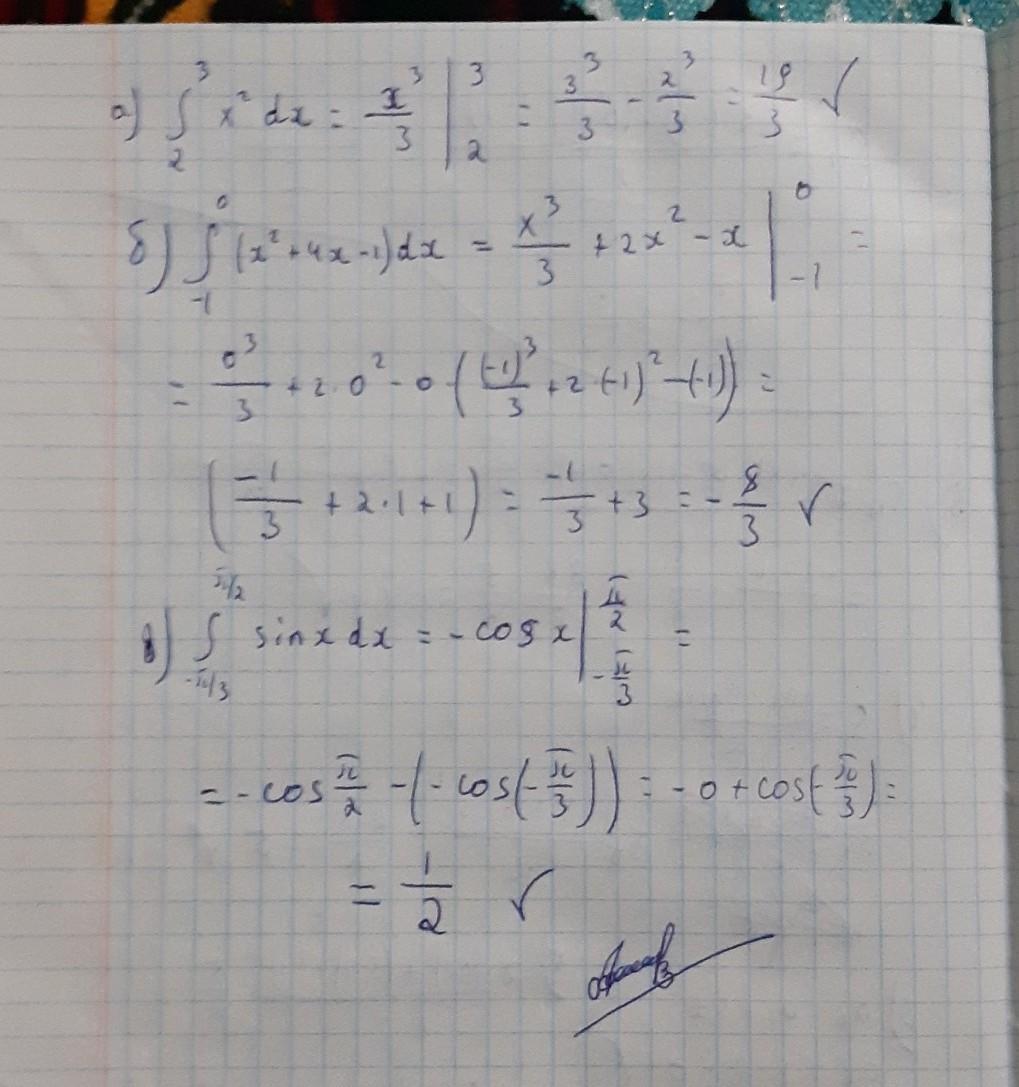 а) ∫₂³ x² dx = x³/3 |₂³ = 3³/3 - 2³/3 = 19/3 ✓
б) ∫₋₁⁰ (x²+4x-1)dx = x³/3 + 2x² - x |₋₁⁰ =
= 0³/3 + 2·0² - 0 ((-1)³/3 + 2·(-1)² - (-1)) =
(-1/3 + 2·1 + 1) = -1/3 + 3 = - 8/3 ✓
в) ∫₋π/₃^π/2 sin x dx = - cos x |₋π/₃^π/2 =
= - cos π/2 - (- cos(-π/3)) = - 0 + cos(-π/3) =
= 1/2 ✓